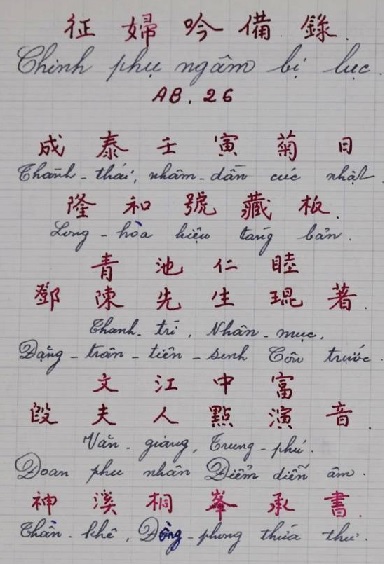 征婦吟備錄.
Chinh phụ ngâm bị lục.
AB. 26
成泰壬寅菊日
Thành-thái, nhâm-dần cúc nhật
隆和號藏板.
Long-hòa hiệu tàng bản.
青池仁睦
鄧陳先生琨著.
Thanh-trì, Nhân-mục,
Đặng-trần-tiên-sinh Côn trước.
文江中富
段夫人點演音.
Văn-giang, Trung-phú.
Đoan phu nhân Điểm diễn âm.
神溪桐峯承書.
Thần-khê, Đồng-phong thừa thư.